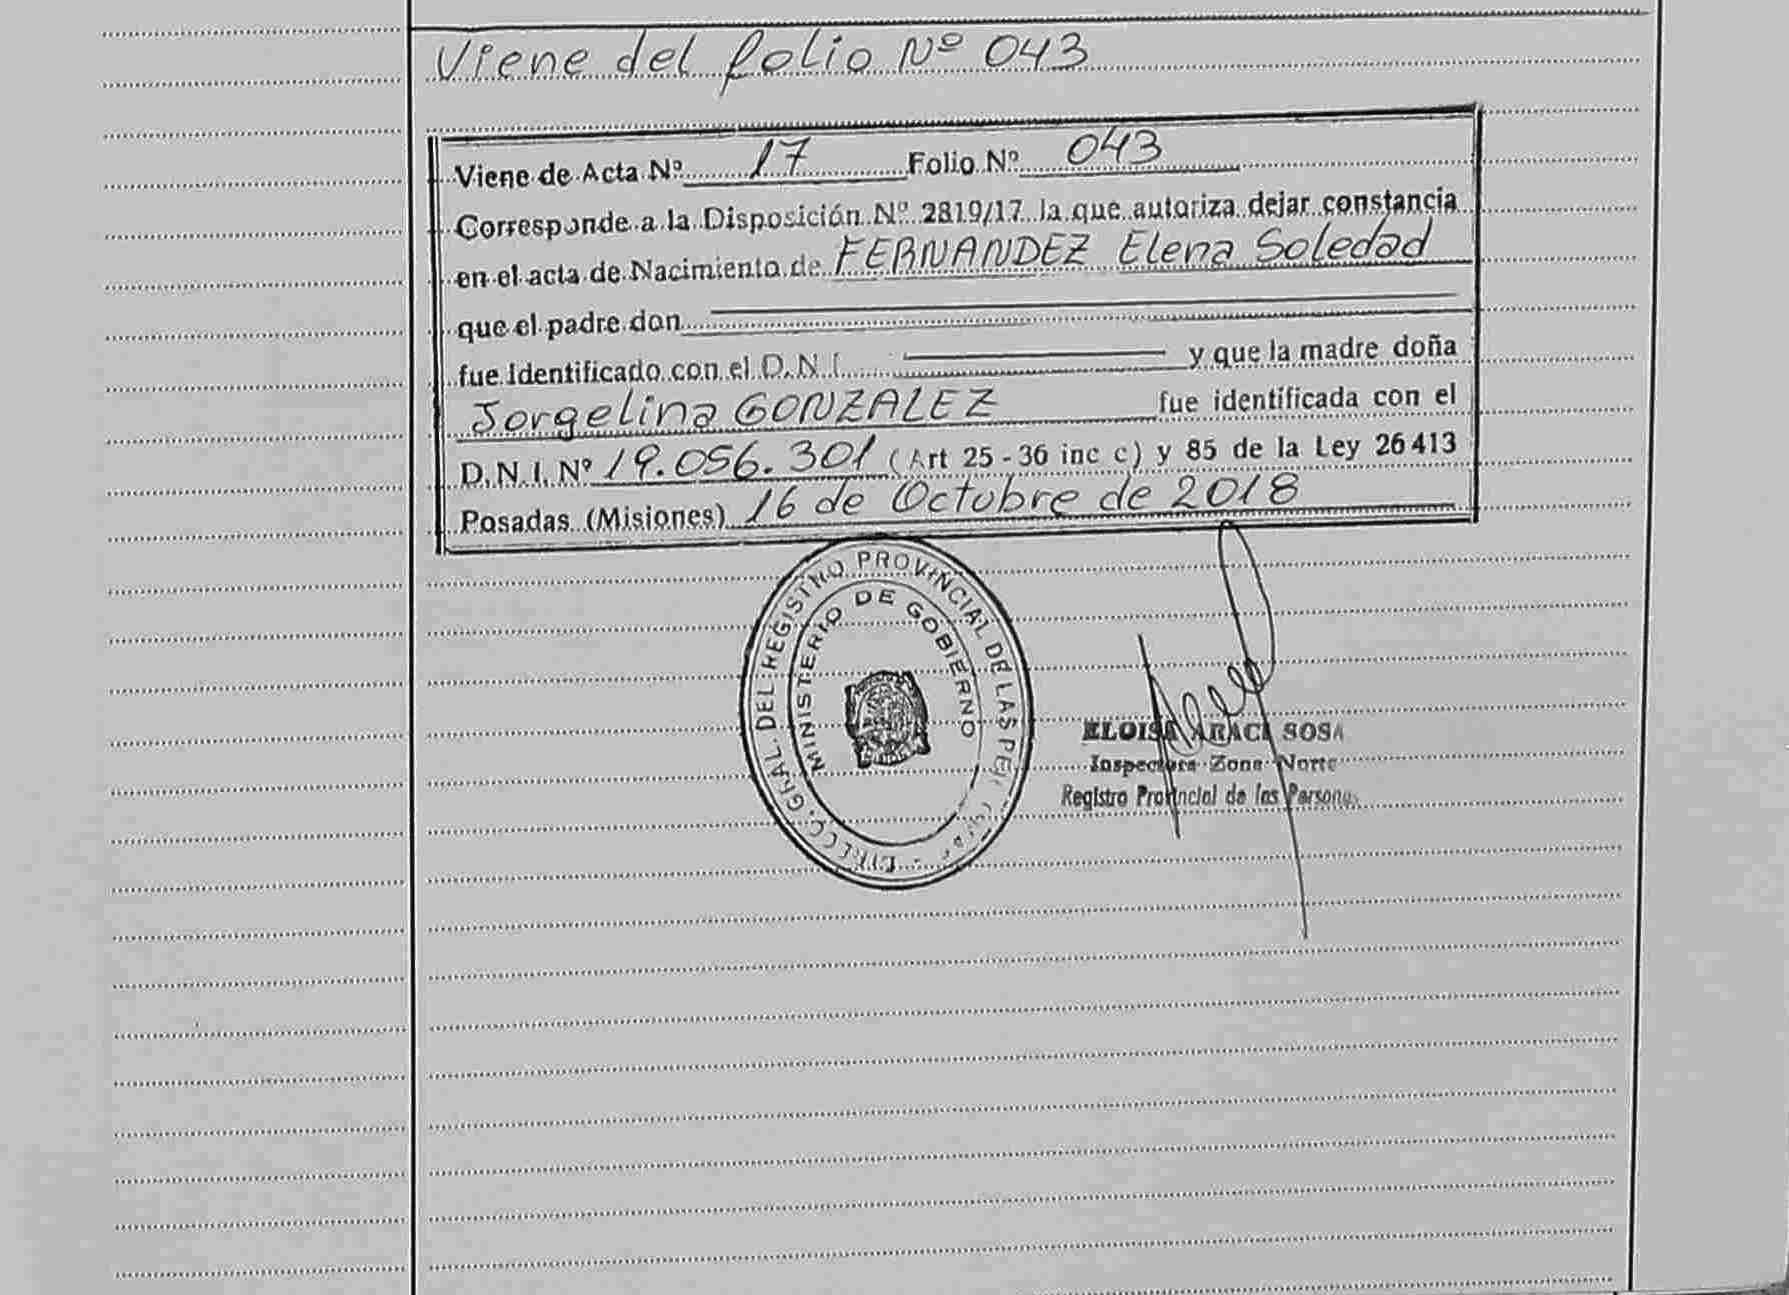 Viene del folio Nº 043
Viene de Acta Nº 17 Folio Nº 043
Corresponde a la Disposición Nº 2819/17 la que autoriza dejar constancia
en el acta de Nacimiento de FERNANDEZ Elena Soledad
que el padre don
fue Identificado con el D.N.I. y que la madre doña
Jorgelina GONZALEZ fue identificada con el
D.N.I. Nº 19.056.301 (Art 25-36 inc c) y 85 de la Ley 26413
Posadas (Misiones) 16 de Octubre de 2018
DIRECC. GRAL. DEL REGISTRO PROVINCIAL DE LAS
MINISTERIO DE GOBIERNO
ELOISA ARACI SOSA
Inspectora Zona Norte
Registro Provincial de las Personas